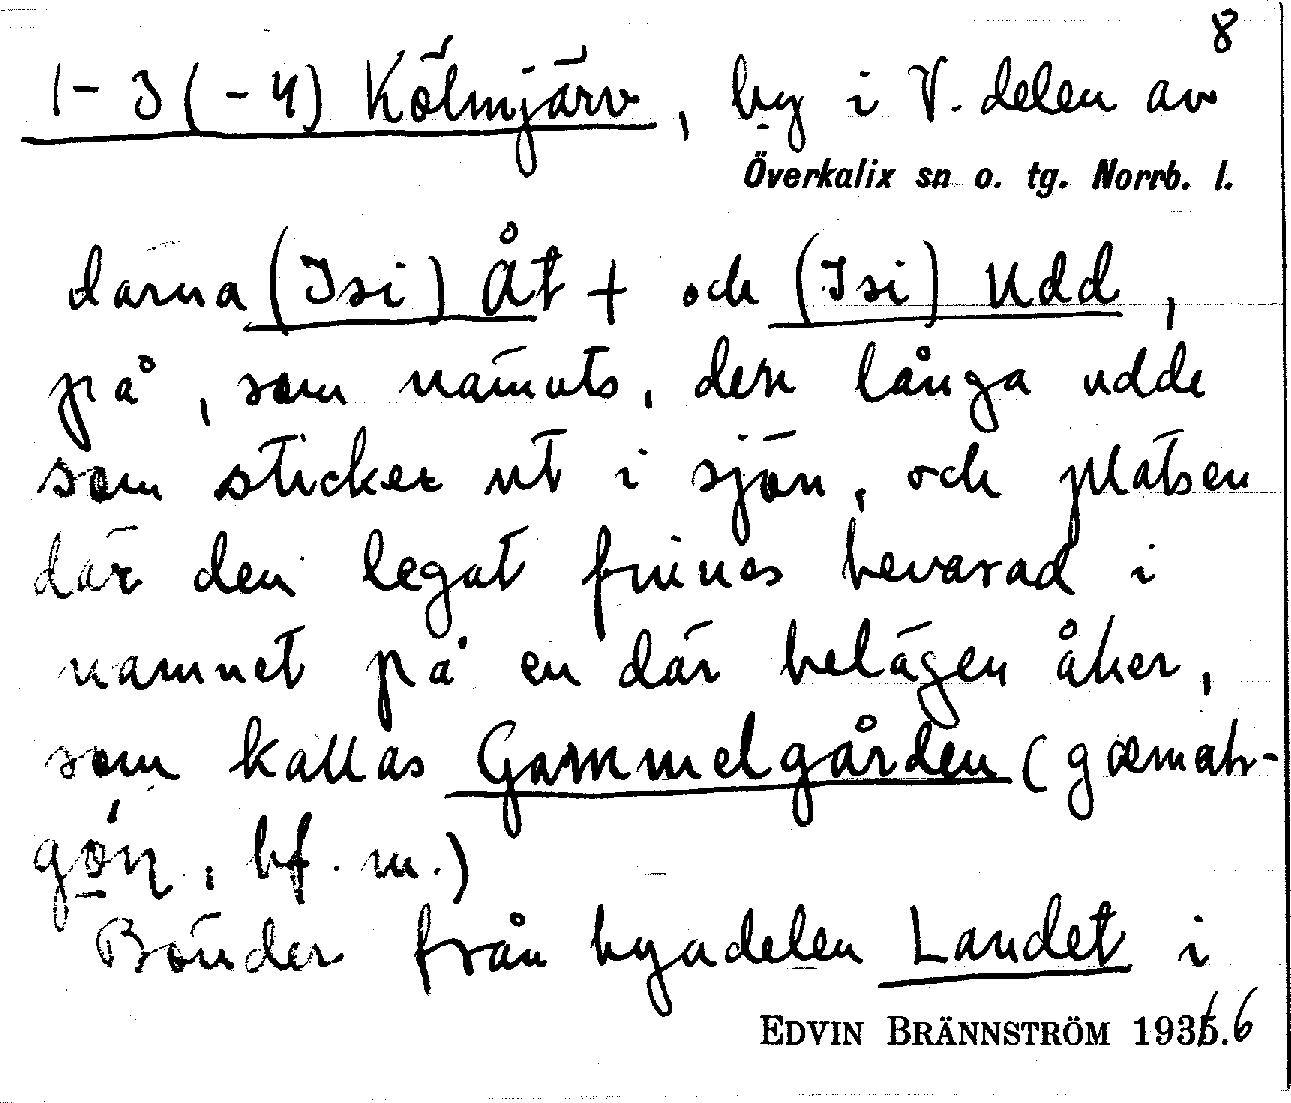 8
1-3(-4) Kölmjärv, by i V. delen av
Överkalix sn o. tg. Norrb. l.
därna (Isi) Åt + och (Isi) Udd,
på, som nämnts, den långa udde
som sticker ut i sjön, och platsen
där den legat finnes bevarad i
namnet på en där belägen åker,
som kallas Gammelgården (gæmaḷ-
gó̱ṇ, bf. m.)
Bönder från byadelen Landet i
EDVIN BRÄNNSTRÖM 1935.6